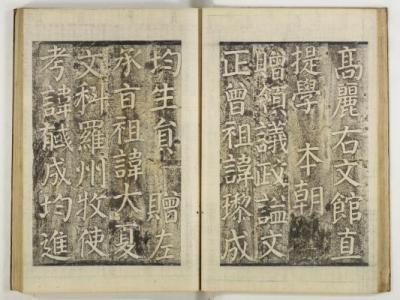 高麗右文館直
提學 本朝
贈領議政謚文
正曾祖諱璨成
均生員 贈左
承旨祖諱大夏
文科羅州牧使
考諱毓成均進